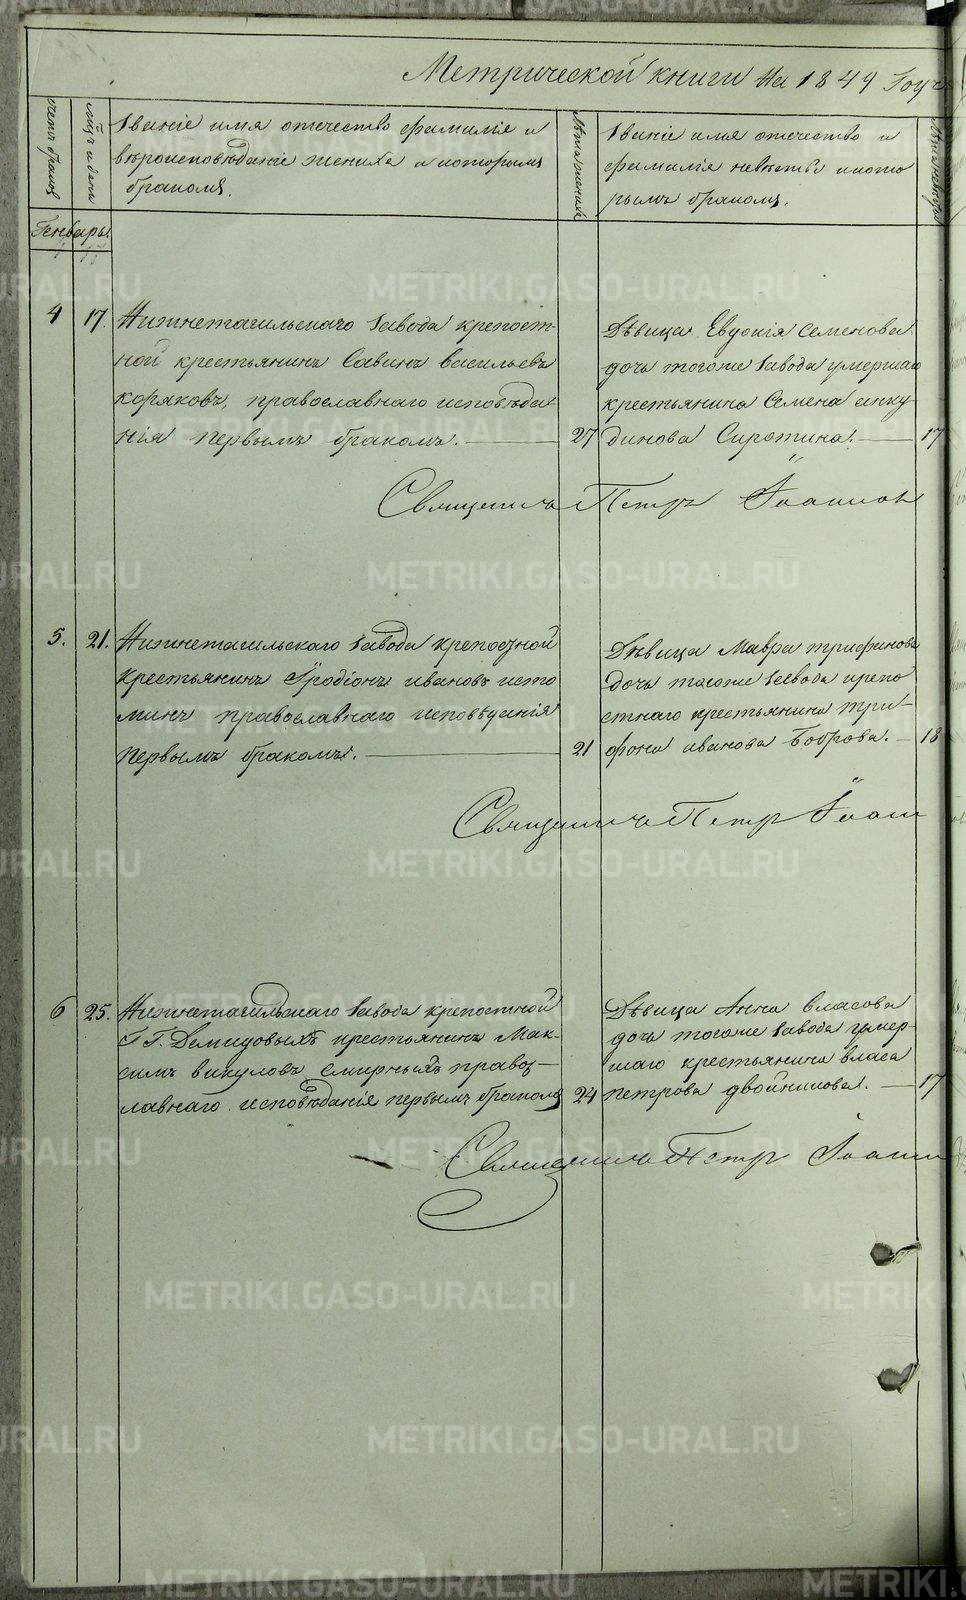 Метрической книги На 1849 Годъ
счетъ браков
мѣц. и день
Званіе имя отечество фамиліе и
вѣроисповѣданіе жениха и которымъ
бракомъ.
Лѣта жениха
Званіе имя отечество и
фамилія невѣсты и кото
рымъ бракомъ.
Лѣта невѣсты
Генварь.
4
17.
Нижнетагильскаго Завода крепост-
ной крестьянинъ Савинъ васильевъ
коряковъ, православнаго исповѣда
нія первымъ бракомъ.
27
Дѣвица Евдокія Семенова
дочь тогоже Завода умершаго
крестьянина Семена анку
динова Сиротина.
17
Священникъ Петръ Іоаннов
5.
21.
Нижнетагильскаго Завода крепостной
крестьянинъ Іродіонъ ивановъ исто
минъ православнаго исповѣданія
первымъ бракомъ.
21
Дѣвица Мавра трифонова
дочь тогоже Завода крепо
стнаго крестьянина три-
фона иванова Боброва.
18
Священникъ Петр Іоанн
6
25.
Нижнетагильскаго Завода крепостной
Г.Г. Демидовыхъ крестьянинъ Мак-
симъ викуловъ смирныхъ правос-
лавнаго исповѣданія первымъ бракомъ
24
Дѣвица Анна власова
дочь тогоже Завода умер-
шаго крестьянина власа
петрова двойникова.
17
Священникъ Петр Іоанн
METRIKI.GASO-URAL.RU